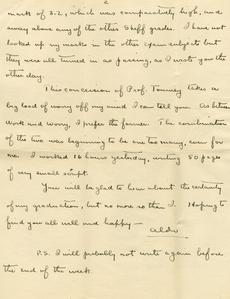 2
mark of 3.2, which was comparatively high, and
away above any of the other Staff grades. I have not
looked up my marks in the other exam subjects but
they were all turned in as passing, as I wrote you the
other day.
This concession of Prof. takes a
big load of worry off my mind I can tell you. As between
work and worry, I prefer the former. The combination
of the two was beginning to be one too many, even for
me. I worked 16 hours yesterday, writing 50 pages
of my small script.
You will be glad to hear about the certainty
of my graduation, but no more so than I. Hoping to
find you all well and happy —
P.S. I will probably not write again before
the end of the week.